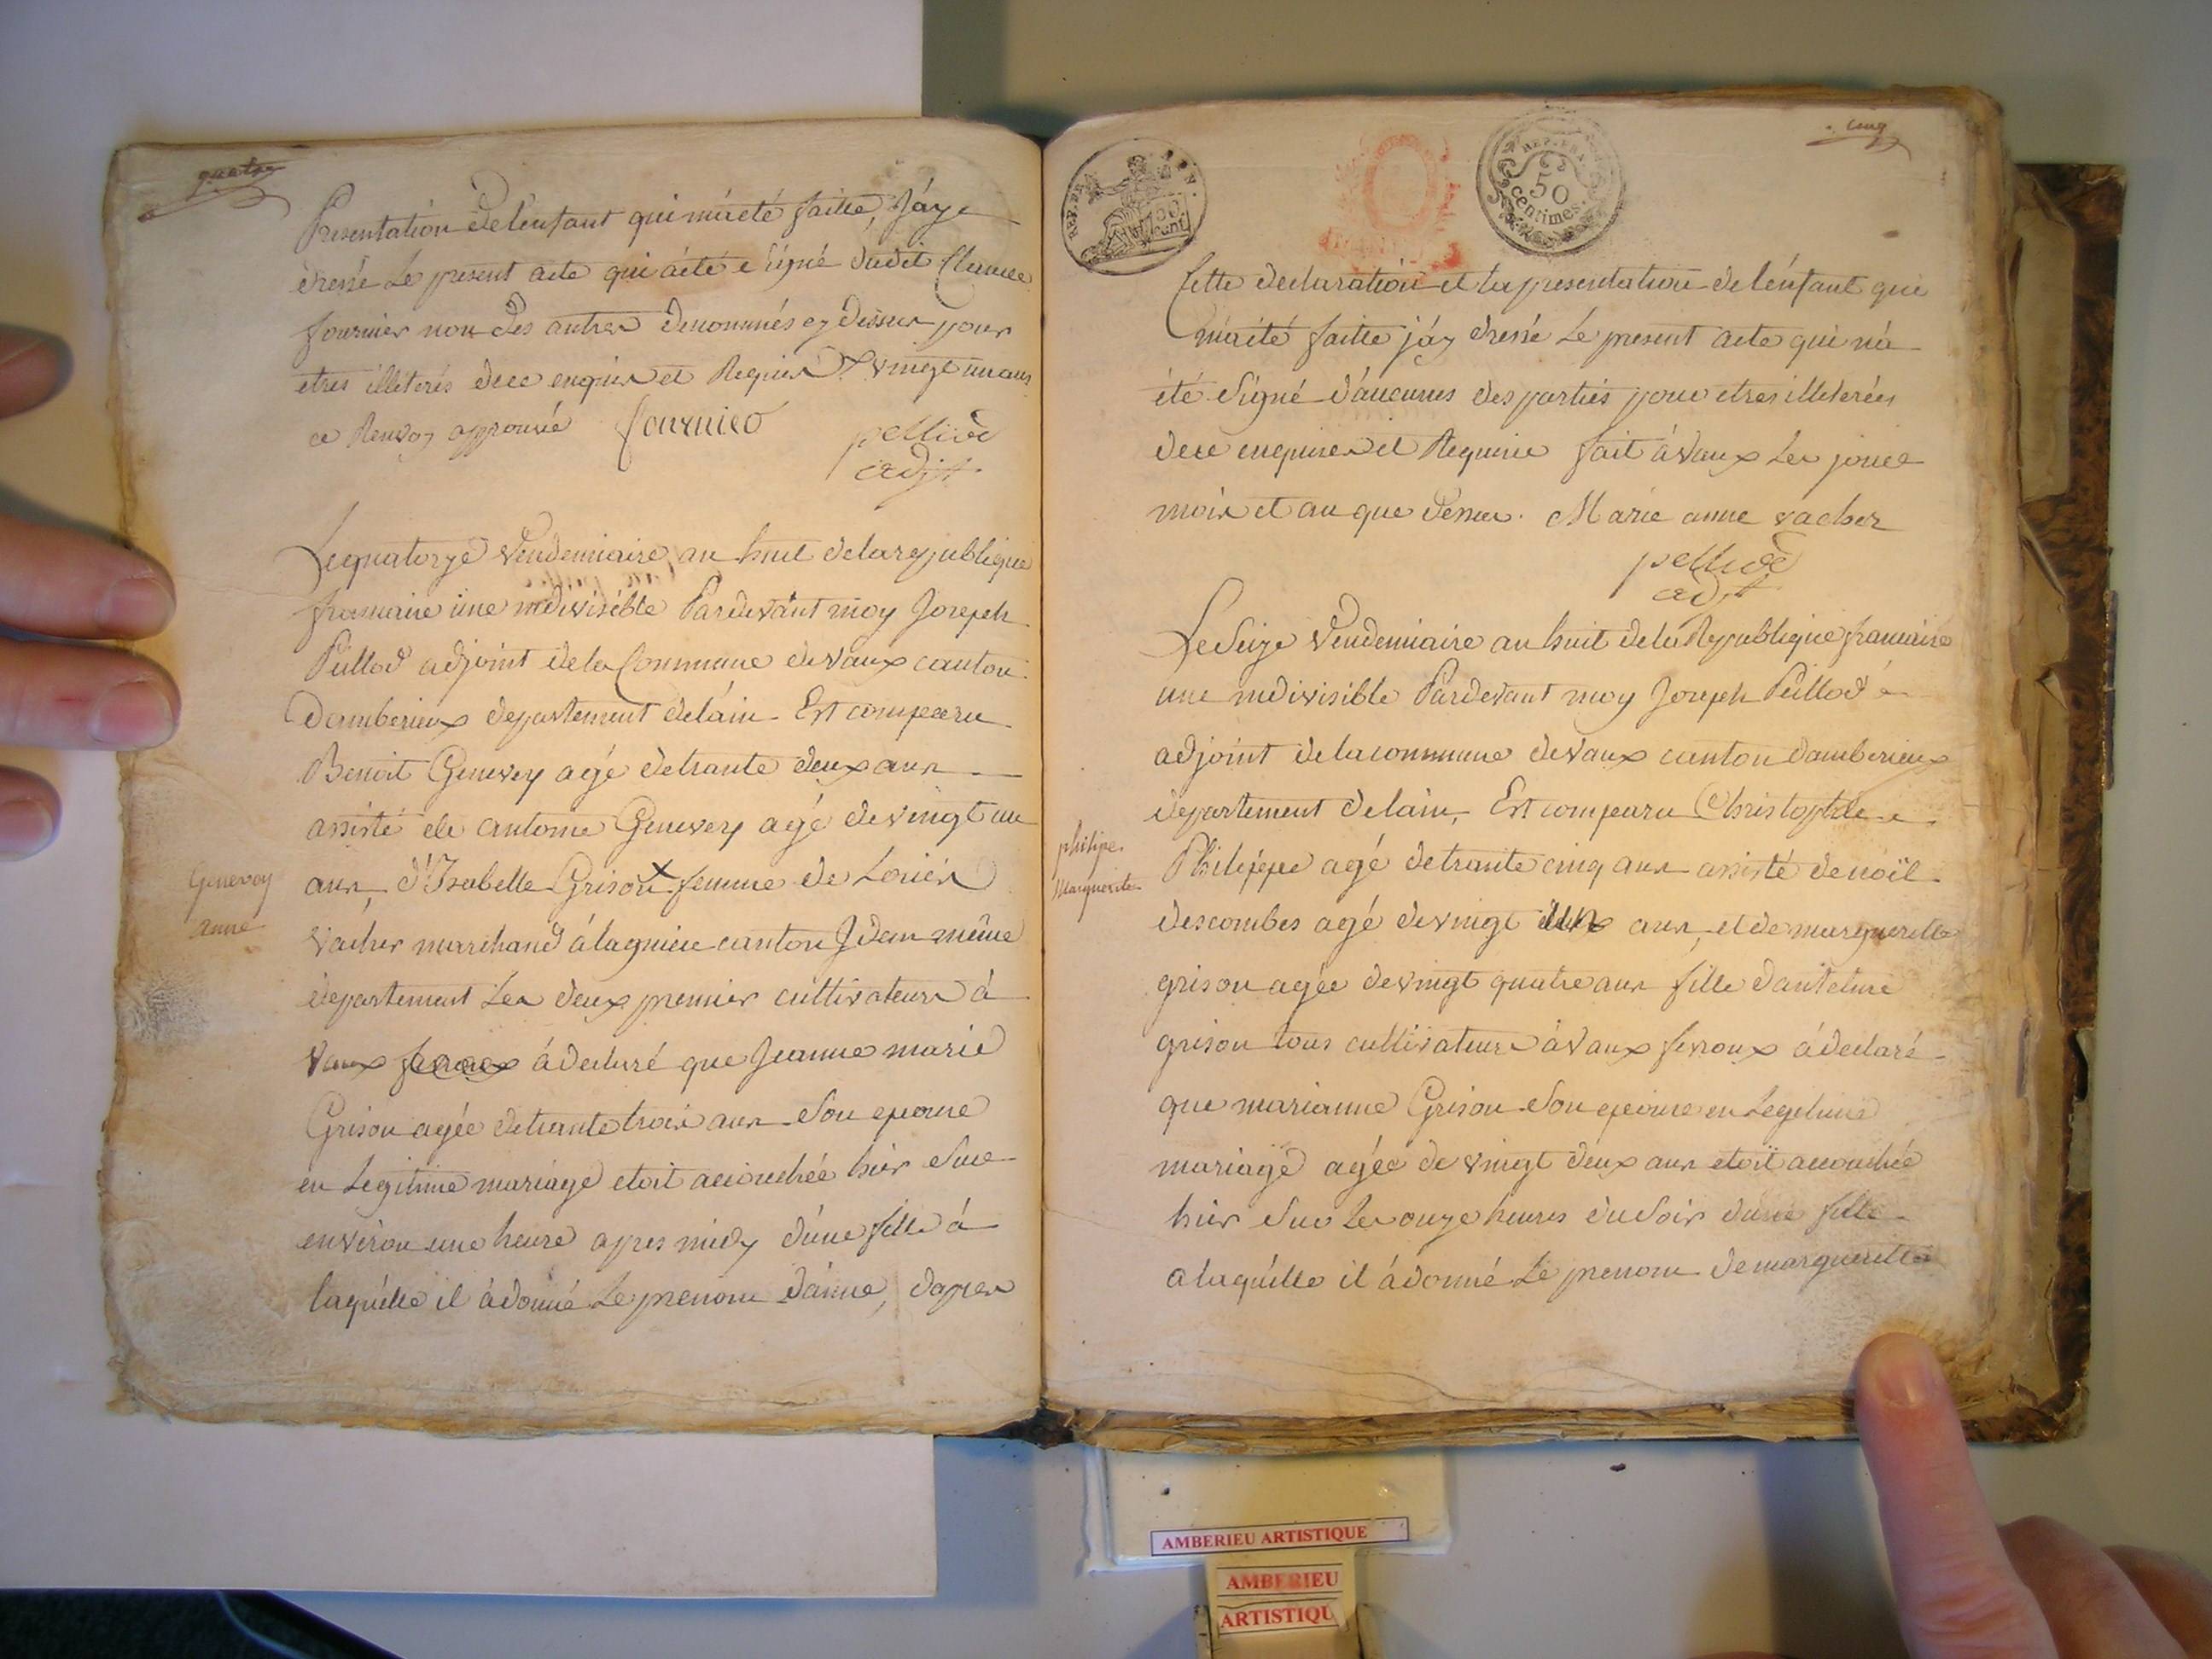 quatre
Presentation de lenfant qui m'a eté faitte, J'ay
dressé le present acte qui a eté signé dudit Claude
fournier non des autres denommés cy dessus pour
etres illiterés de ce enquis et Requis vingt un ans
ce Renvoy approuvé fournier pelliod
adjt
Le quatorze Vendemiaire an huit de la republique
francaise une indivisible Pardevant moy Joseph
Peillod adjoint de la Commune de vaux canton
D'amberieux departement de lain Est comparu
Benoit Genevey agé de trante deux ans
assisté de antoine Genevey agé de vingt un
ans, d'Isabelle Grison x femme de
Genevay
anne
vacher marchand à lagnieu canton Idem même
departement Les deux premier cultivateurs à
vaux à declaré que Jeanne marie
Grison agée de trante trois ans Son epouse
en Legitime mariage etoit accouchée hier Sur
environ une heure apres midy d'une fille à
laquelle il à donné Le prenom d'anne, dapres
cinq
REP. FRA.
50 centimes.
Cette declaration et la presentation de l'énfant qui
m'a eté faitte j'ay dressé Le present acte qui n'a
été Signé d'aucunes des partiés pour etres illiterées
de ce enquises et Requise fait à vaux Les jour
mois et an que dessus. Marie anne vacher
pelliod
adjt
Le Seize Vendemiaire an huit de la Republique francaise
une indivisible Pardevant moy Joseph Peillod
adjoint de la commune de vaux canton damberieux
departement de lain, Est comparu Christophle
philipe
Marguerite
Philippe agé de trante cinq ans assisté de noël
descombes agé de vingt ans, et de margueritte
grison agée de vingt quatre ans fille d'antelme
grison tous cultivateurs à vaux fevroux à declaré
que marianne Grison Son epouse en Legitime
mariage agée de vingt deux ans etoit accouchée
hier Sur Les onze heures du Soir d'une fille
a laquelle il à donné Le prenom de margueritte
AMBERIEU ARTISTIQUE
AMBERIEU
ARTISTIQU